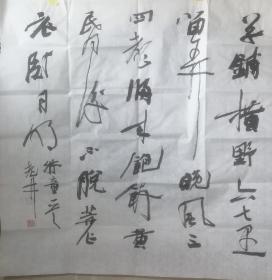 草鋪橫野六七里
笛弄晚風三
四聲歸來飽飯黃
昏後不脫蓑
衣臥月明
牧童